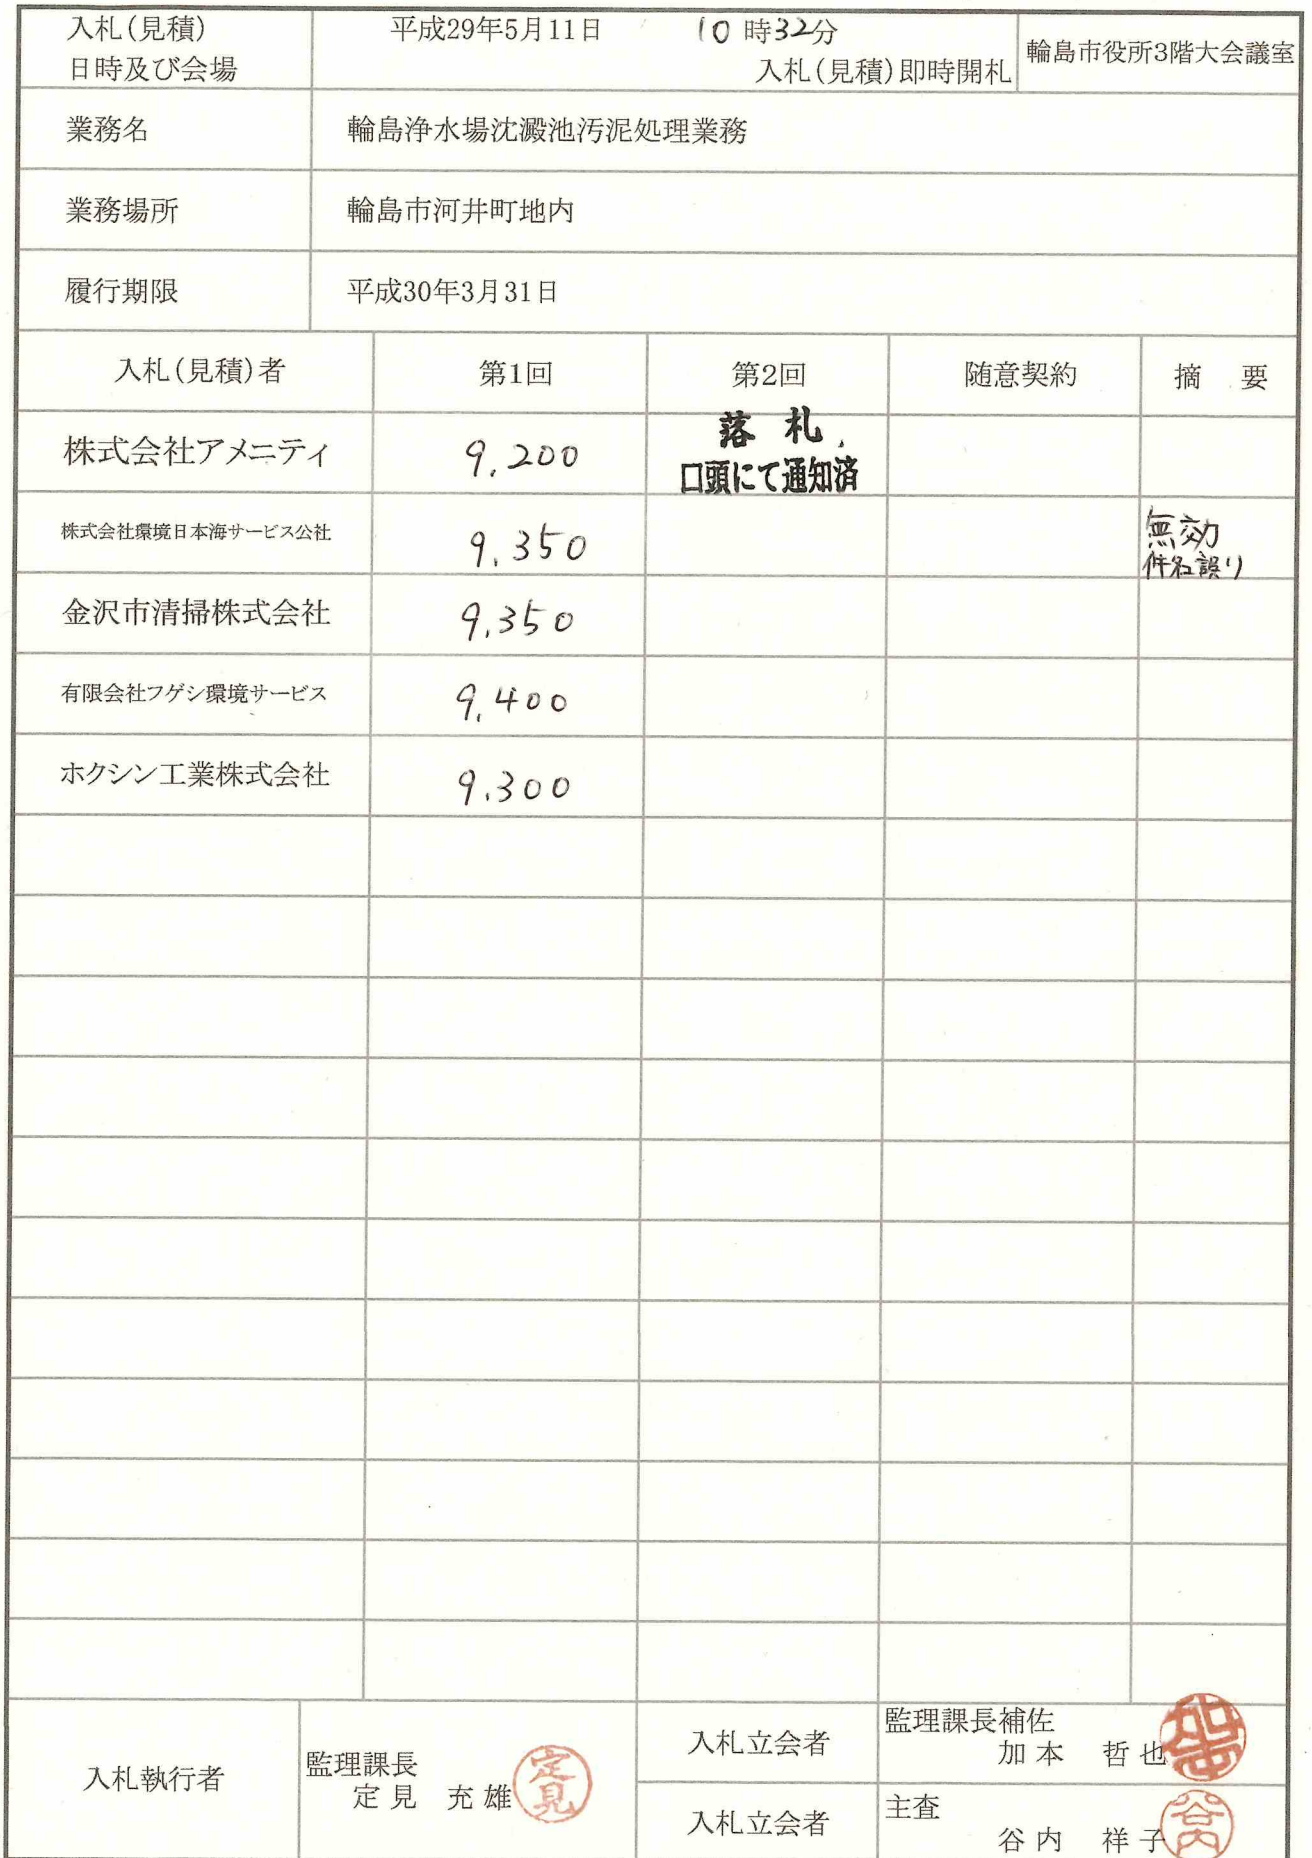 入札(見積)
日時及び会場
平成29年5月11日 10時32分
入札(見積)即時開札
輪島市役所3階大会議室
業務名 輪島浄水場沈澱池汚泥処理業務
業務場所 輪島市河井町地内
履行期限 平成30年3月31日
入札(見積)者 第1回 第2回 随意契約 摘 要
株式会社アメニティ 9,200 落札
口頭にて通知済
株式会社環境日本海サービス公社 9,350 無効
件名誤り
金沢市清掃株式会社 9,350
有限会社フゲシ環境サービス 9,400
ホクシン工業株式会社 9,300
入札執行者
監理課長
定見 充雄
定見
入札立会者
監理課長補佐
加本 哲也
入札立会者
主査
谷内 祥子
谷内